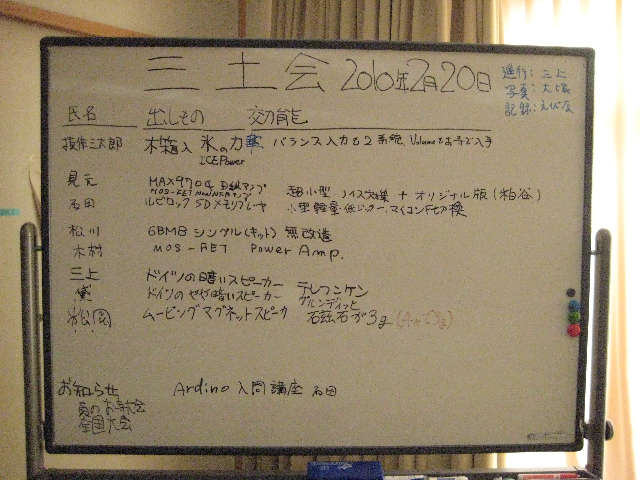 三土会 2010年2月20日
進行: 三上
写真: 大塚
記録:
氏名 出しもの 効能
木箱入 氷の力 バランス入力も2系統, Volumeもお手で入手
ICE Power
見元 MAX9704 D級アンプ 超小型 ノイズ交換 + オリジナル版(粕谷)
石田 ルビロック SDメモリプレーヤ 小型軽量・低ジッター、マイコンF七力換
松川 6BM8 シングル(キット) 無改造
木村 MOS-FET Power Amp.
三上 ドイツの暗いスピーカー テレフンケン
ドイツのぜぜ暗いスピーカー グルンディッヒ
松岡 ムービングマグネットスピーカ 石磁石が3g
お知らせ Ardino 入門講座 石田
真のお寺大会
全国大会